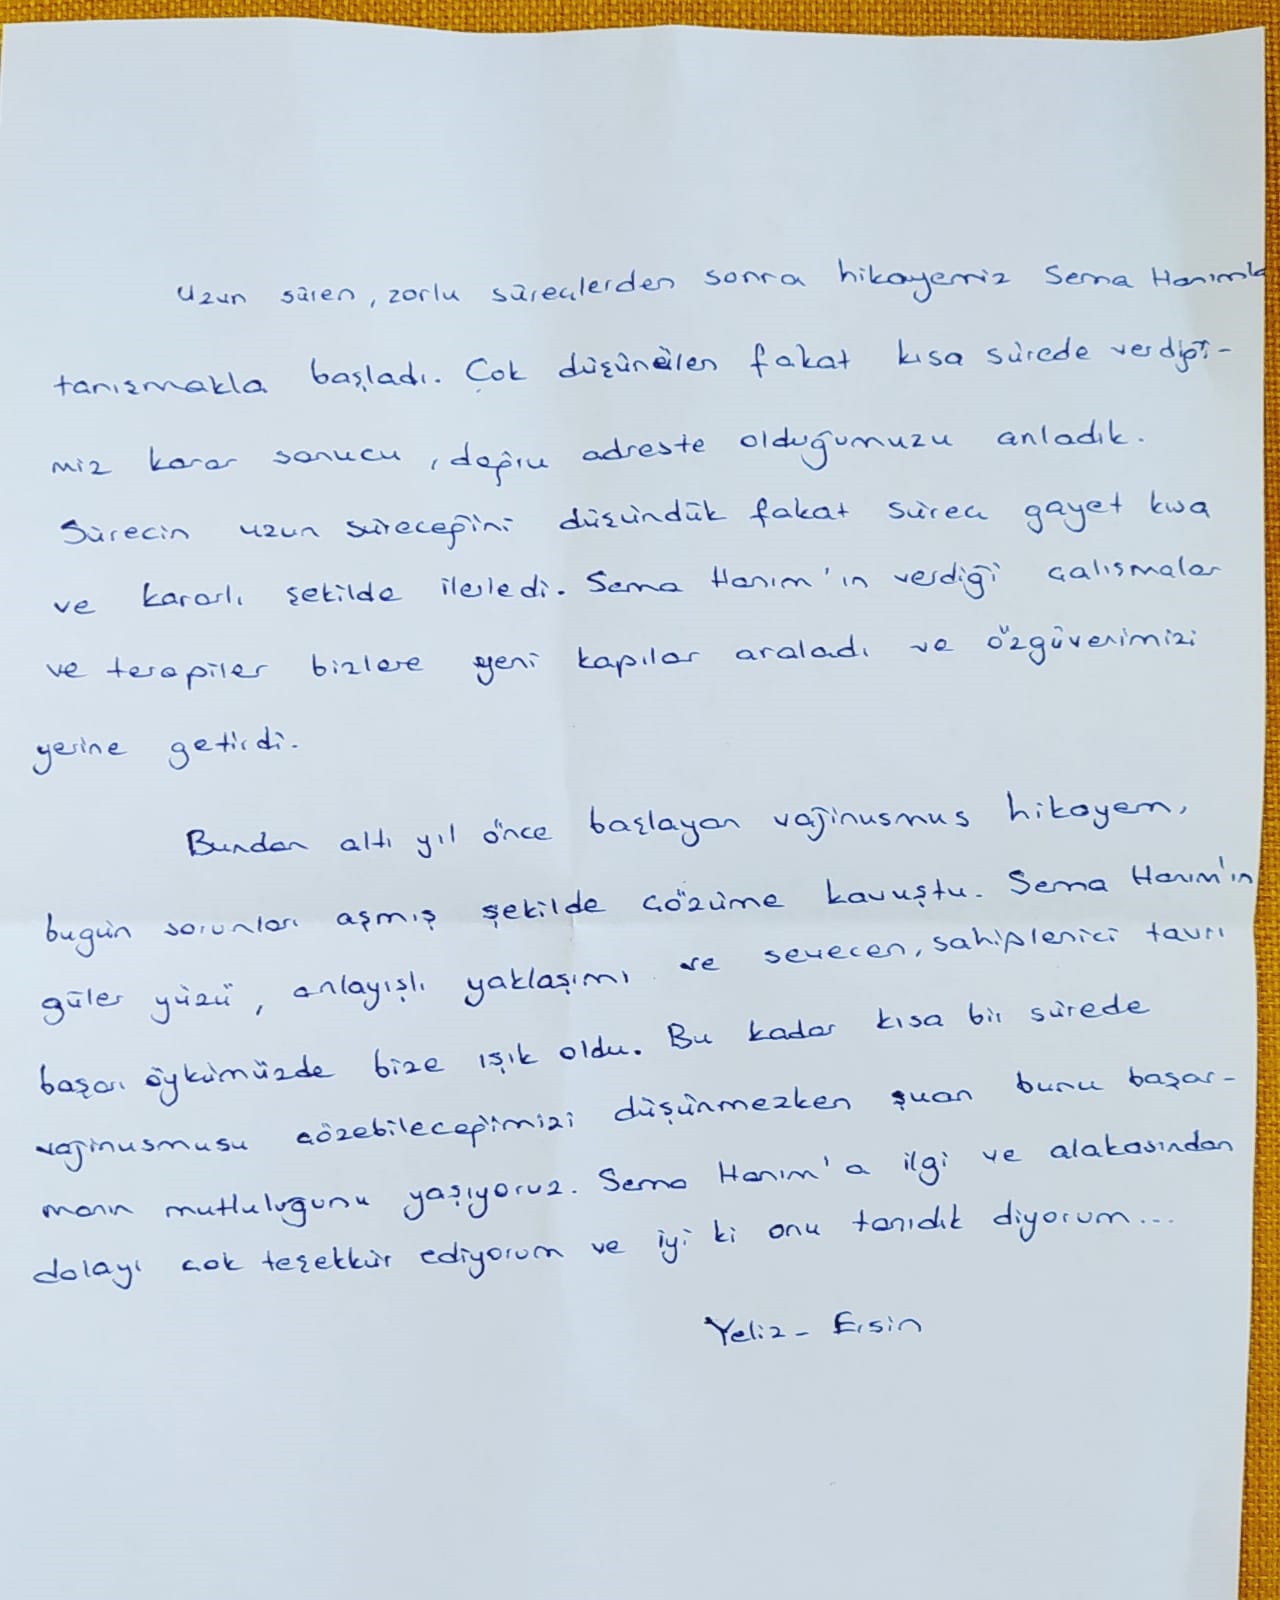 Uzun süren, zorlu süreçlerden sonra hikayemiz Sema Hanımla
tanışmakla başladı. Çok düşünülen fakat kısa sürede verdiği-
miz karar sonucu, doğru adreste olduğumuzu anladık.
Sürecin uzun süreceğini düşündük fakat süreç gayet kısa
ve kararlı şekilde ilerledi. Sema Hanım'ın verdiği çalışmalar
ve terapiler bizlere yeni kapılar araladı ve özgüvenimizi
yerine getirdi.
Bundan altı yıl önce başlayan vajinusmus hikayem,
bugün sorunları aşmış şekilde çözüme kavuştu. Sema Hanım'ın
güler yüzü, anlayışlı yaklaşımı ve sevecen, sahiplenici tavrı
başarı öykümüzde bize ışık oldu. Bu kadar kısa bir sürede
vajinusmusu çözebileceğimizi düşünmezken şuan bunu başar-
manın mutluluğunu yaşıyoruz. Sema Hanım'a ilgi ve alakasından
dolayı çok teşekkür ediyorum ve iyi ki onu tanıdık diyorum...
Yeliz - Ersin